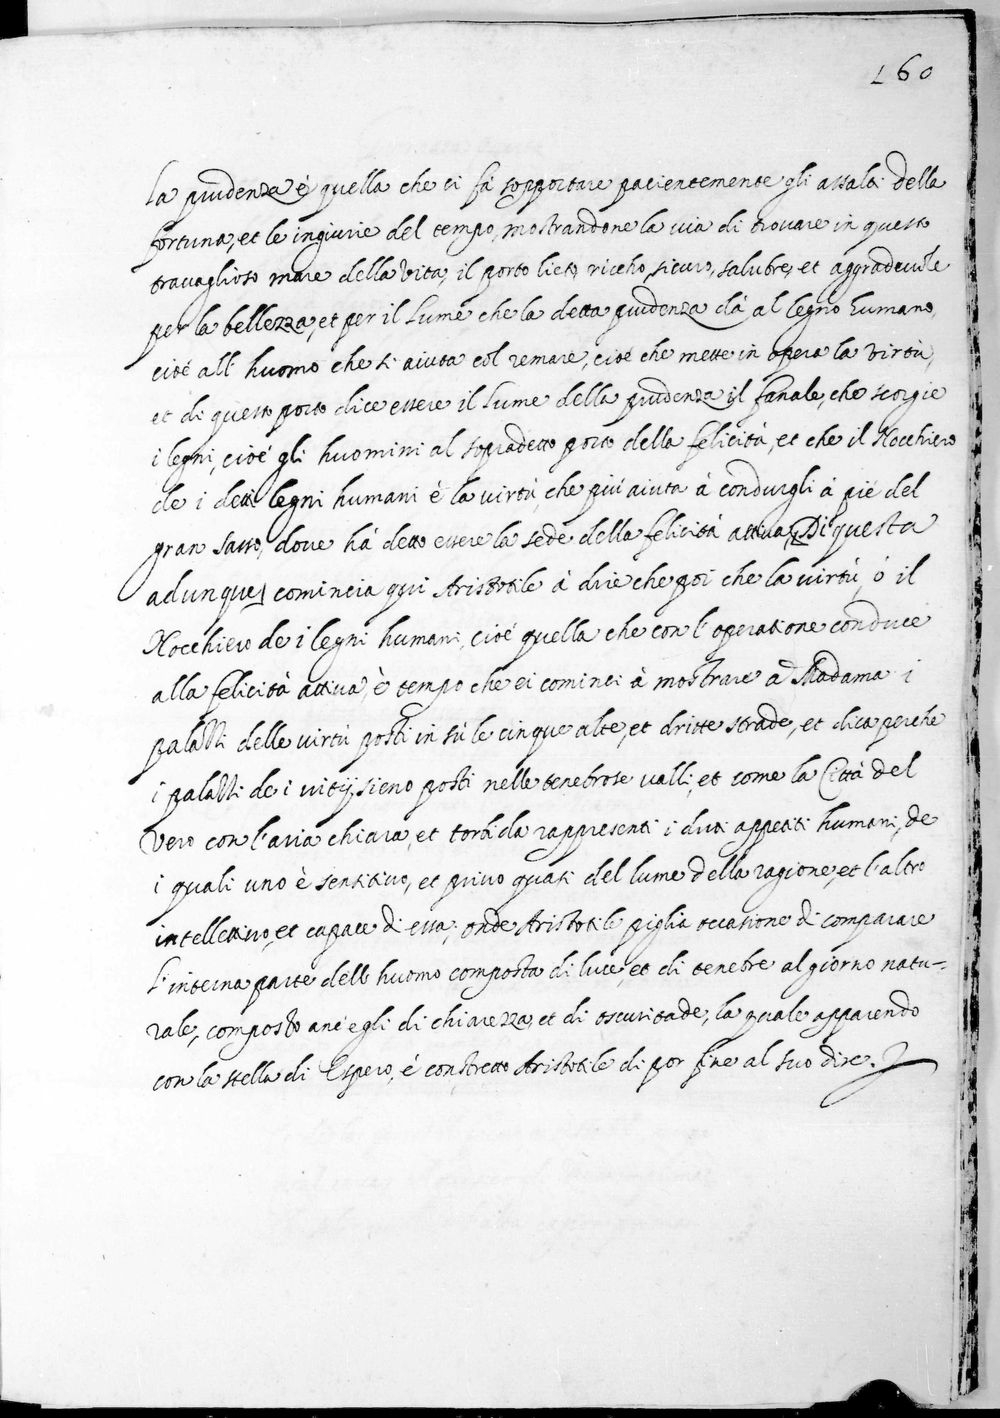 160
la prudenza è quella che ci fà sopportare pacientemente gli assalti della
fortuna, et le ingiurie del tempo, mostrandone la via di trovare in questo
travaglioso mare della vita, il porto lieto, riccho, sicuro, salubre, et aggradevile
per la bellezza, et per il lume che la detta prudenza dà al legno humano,
cioè all' huomo che si aiuta col remare, cioè che mette in opera la virtù,
et di questo porto dice essere il lume della prudenza il fanale, che scorgie
i legni, cioè gli huomini al sopradetto porto della felicità, et che il Nocchiero
de i detti legni humani è la virtù, che più aiuta à condurgli à piè del
gran sasso, dove hà detto essere la sede della felicità attiva, Di questa
adunque comincia qui Aristotile à dire che poi che la virtù, è il
Nocchiero de i legni humani, cioè quella che con l'operatione conduce
alla felicità attiva, è tempo che ei cominci à mostrare a Madama i
palazzi delle virtù posti in sù le cinque alte, et dritte strade, et dica perche
i palazzi de i vitij sieno posti nelle tenebrose valli, et come la Città del
Vero con l'aria chiara, et torbida rappresenti i dui appetiti humani, de
i quali uno è sensitivo, et privo quasi del lume della ragione, et l'altro
intellettivo, et capace di essa, onde Aristotile piglia occasione di comparare
l'interna parte dell' huomo composta di luce, et di tenebre al giorno natu-
rale, composto anc' egli di chiarezza, et di oscuritade, la quale apparendo
con la stella di Espero, è constretto Aristotile di por fine al suo dire.